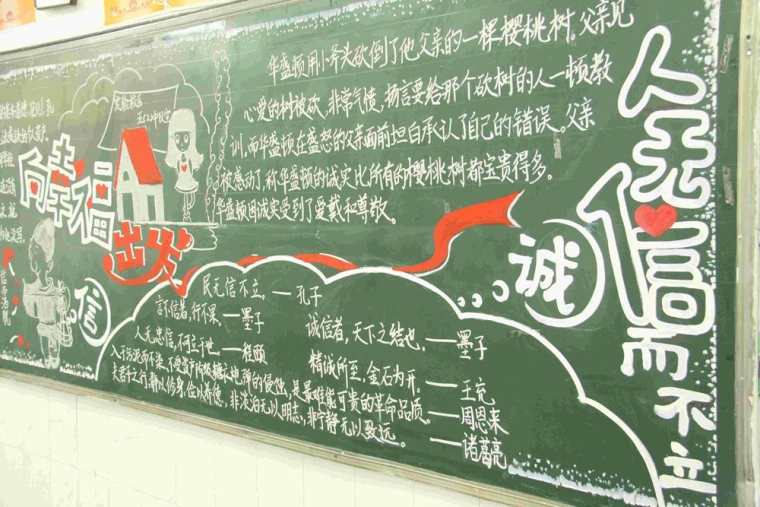 华盛顿用小斧头砍倒了他父亲的一棵樱桃树。父亲见
心爱的树被砍,非常气愤,扬言要给那个砍树的人一顿教
训。而华盛顿在盛怒的父亲面前坦白承认了自己的错误。父亲
被感动了,称华盛顿的诚实比所有的樱桃树都宝贵得多。
华盛顿因诚实受到了爱戴和尊敬。
人无信而不立
向幸福
出发
诚
信
民无信不立。——孔子
言不信者,行不果。——墨子
诚信者,天下之结也。——墨子
人无忠信,不可立于世——程颐
精诚所至,金石为开。——王充
入于污泥而不染、不受资产阶级糖衣炮弹的侵蚀,是最难能可贵的革命品质。——周恩来
夫君子之行,静以修身,俭以养德,非淡泊无以明志,非宁静无以致远。——诸葛亮